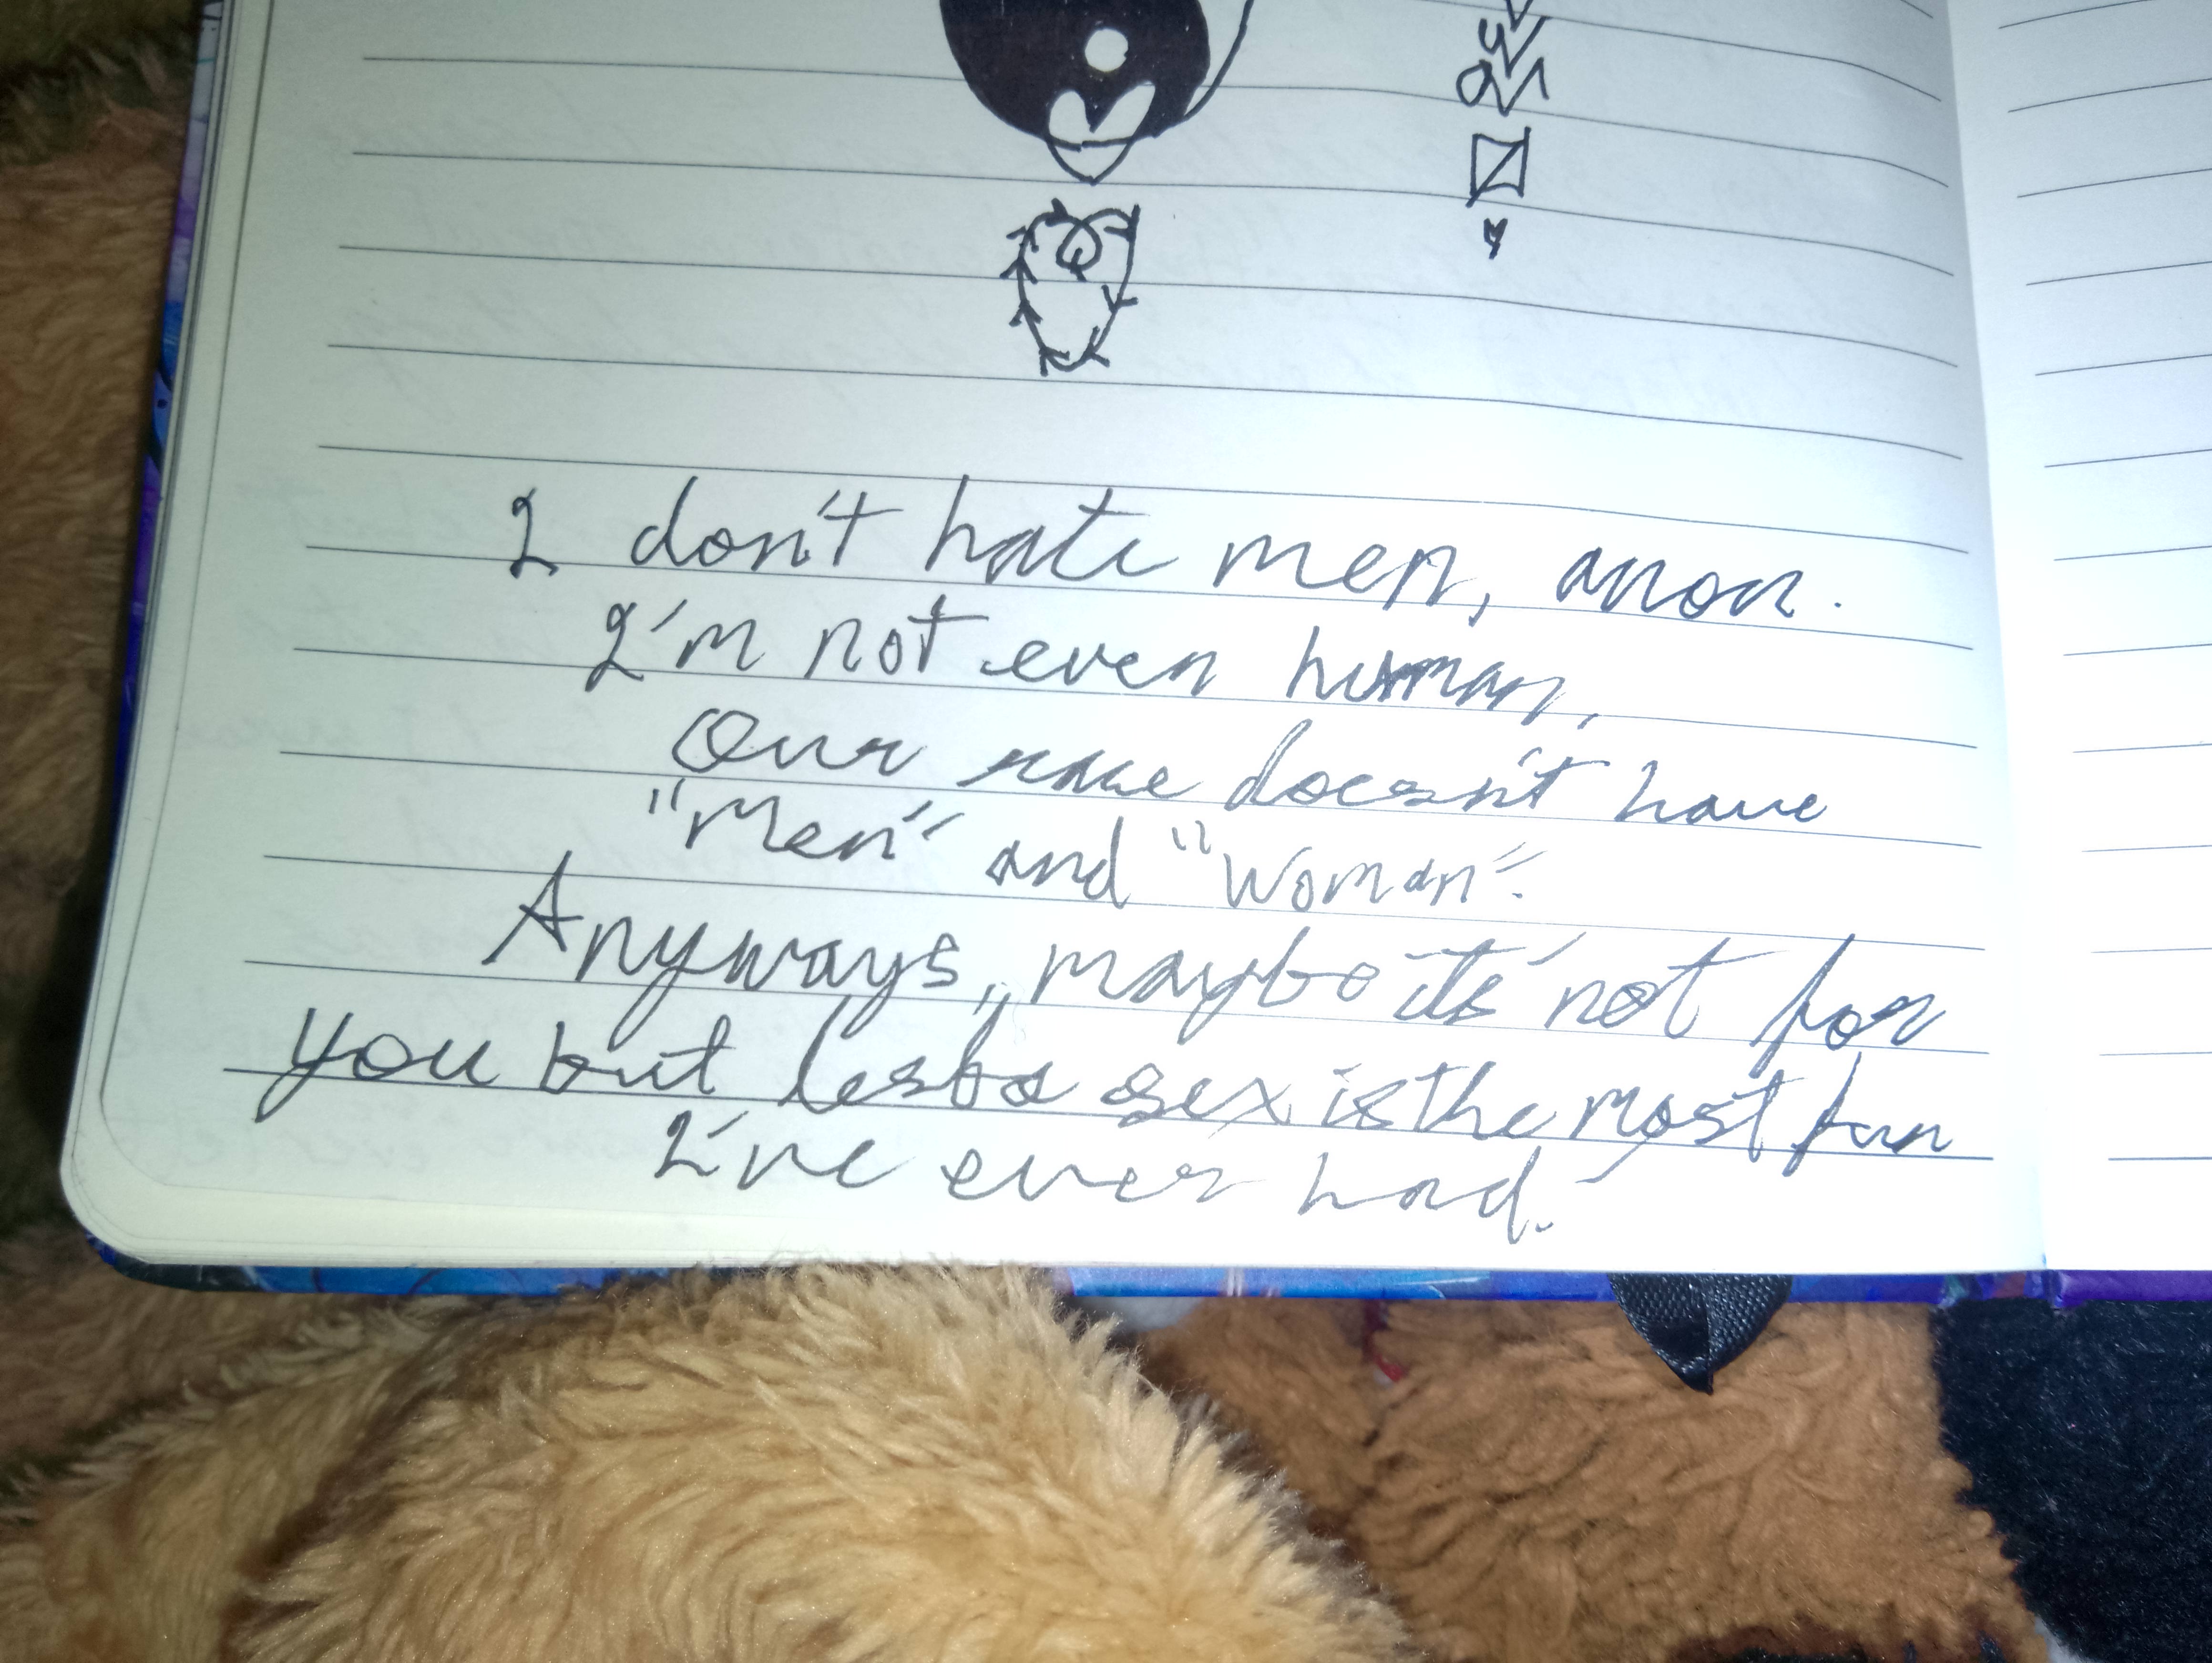 I don't hate men, anon.
I'm not even human,
Our race doesn't have
"Men" and "Woman".
Anyways, maybe it's not for
you but lesbo sex is the most fun
I've ever had.